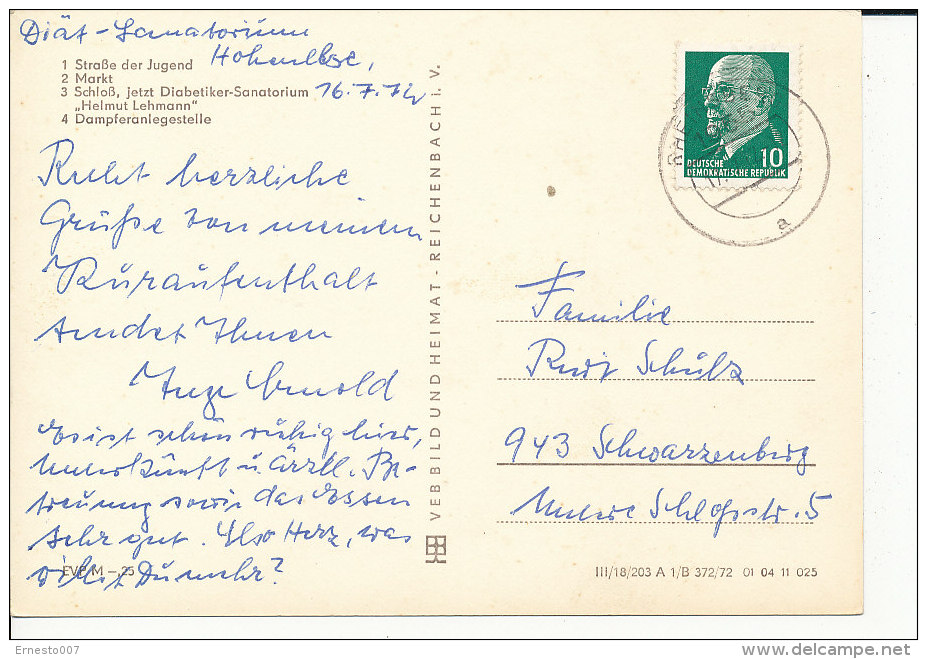 Diät-Sanatorium
Hohenelse,
16.7.72
1 Straße der Jugend
2 Markt
3 Schloß, jetzt Diabetiker-Sanatorium
„Helmut Lehmann"
4 Dampferanlegestelle
Recht herzliche
Grüße von meinem
Kuraufenthalt
sendet Ihnen
Inge Arnold
Es ist schön ruhig hier,
Unterkünft u. ärztl. Be-
treuung sowie das Essen
sehr gut. Also Herz, was
willst Du mehr?
EVP M – 25
VEB BILD UND HEIMAT · REICHENBACH i. V.
DEUTSCHE
DEMOKRATISCHE REPUBLIK
10
a
Familie
Rudi Schulz
943 Schwarzenberg
Untere Schloßstr. 5
III/18/203 A 1/B 372/72 01 04 11 025
Ernesto007
delcampe.net